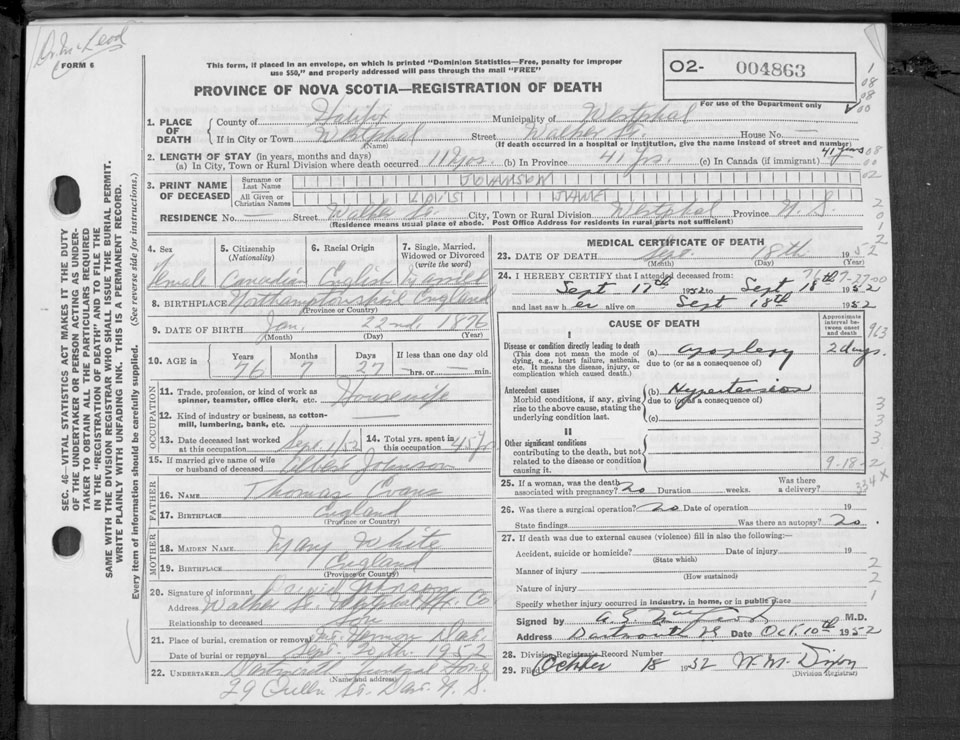 Dr. McLeod
FORM 6
This form, if placed in an envelope, on which is printed "Dominion Statistics—Free, penalty for improper
use $50," and properly addressed will pass through the mail "FREE"
PROVINCE OF NOVA SCOTIA—REGISTRATION OF DEATH
02- 004863
For use of the Department only
1. PLACE OF DEATH
County of Halifax Municipality of Westphal
If in City or Town Westphal Street Walker St. House No. —
(Name) (If death occurred in a hospital or institution, give the name instead of street and number)
2. LENGTH OF STAY (in years, months and days)
(a) In City, Town or Rural Division where death occurred 11 yrs. (b) In Province 41 Yrs. (c) In Canada (if immigrant) 41 years
3. PRINT NAME OF DECEASED
Surname or Last Name JOHNSON
All Given or Christian Names
RESIDENCE No. — Street Walker St. City, Town or Rural Division Westphal Province N. S.
(Residence means usual place of abode. Post Office Address for residents in rural parts not sufficient)
SEC. 46—VITAL STATISTICS ACT MAKES IT THE DUTY
OF THE UNDERTAKER OR PERSON ACTING AS UNDER-
TAKER TO OBTAIN ALL THE PARTICULARS REQUIRED
IN THE "REGISTRATION OF DEATH" AND TO FILE THE
SAME WITH THE DIVISION REGISTRAR WHO SHALL ISSUE THE BURIAL PERMIT.
WRITE PLAINLY WITH UNFADING INK. THIS IS A PERMANENT RECORD.
Every item of information should be carefully supplied. (See reverse side for instructions.)
4. Sex 5. Citizenship (Nationality) 6. Racial Origin 7. Single, Married, Widowed or Divorced (write the word)
Female Canadian English Married
8. BIRTHPLACE Northamptonshire England
(Province or Country)
9. DATE OF BIRTH Jan. 22nd. 1876
(Month) (Day) (Year)
10. AGE in Years Months Days If less than one day old
76 7 27 —hrs. or —min.
OCCUPATION
11. Trade, profession, or kind of work as
spinner, teamster, office clerk, etc. Housewife
12. Kind of industry or business, as cotton-
mill, lumbering, bank, etc. —
13. Date deceased last worked at this occupation Sept. 1/52 14. Total yrs. spent in this occupation 45 yrs
15. If married give name of wife
or husband of deceased Albert Johnson
FATHER
16. NAME Thomas Evans
17. BIRTHPLACE England
(Province or Country)
MOTHER
18. MAIDEN NAME Mary White
19. BIRTHPLACE England
(Province or Country)
20. Signature of informant Johnson
Address Walker St. Westphal Hfx. Co
Relationship to deceased Son
21. Place of burial, cremation or removal Mt. Hermon Dart.
Date of burial or removal Sept. 20th. 1952
22. UNDERTAKER Dartmouth Funeral Home
(Name and address)
29 Queen St. Dart. N. S.
MEDICAL CERTIFICATE OF DEATH
23. DATE OF DEATH Sept. 18th 1952
(Month) (Day) (Year)
24. I HEREBY CERTIFY that I attended deceased from:
Sept 17th 1952 to Sept 18th 1952
and last saw her alive on Sept 18th 1952
CAUSE OF DEATH
Approximate interval between onset and death
I
Disease or condition directly leading to death
(This does not mean the mode of dying, e.g., heart failure, asthenia, etc. It means the disease, injury, or complication which caused death.)
(a) apoplexy 2 days.
due to (or as a consequence of)
Antecedent causes
Morbid conditions, if any, giving rise to the above cause, stating the underlying condition last.
(b) Hypertension
due to (or as a consequence of)
(c)
II
Other significant conditions
contributing to the death, but not related to the disease or condition causing it.
9-18-2
25. If a woman, was the death associated with pregnancy? No Duration weeks. Was there a delivery?
26. Was there a surgical operation? No Date of operation 19
State findings Was there an autopsy? No.
27. If death was due to external causes (violence) fill in also the following:—
Accident, suicide or homicide? Date of injury 19
(State which)
Manner of injury
(How sustained)
Nature of injury
Specify whether injury occurred in industry, in home, or in public place
Signed by M.D.
Address Dartmouth NS Date Oct. 10th 1952
28. Division Registrar's Record Number
29. Filed October 18 1952 W. M. Dixon
(Division Registrar)